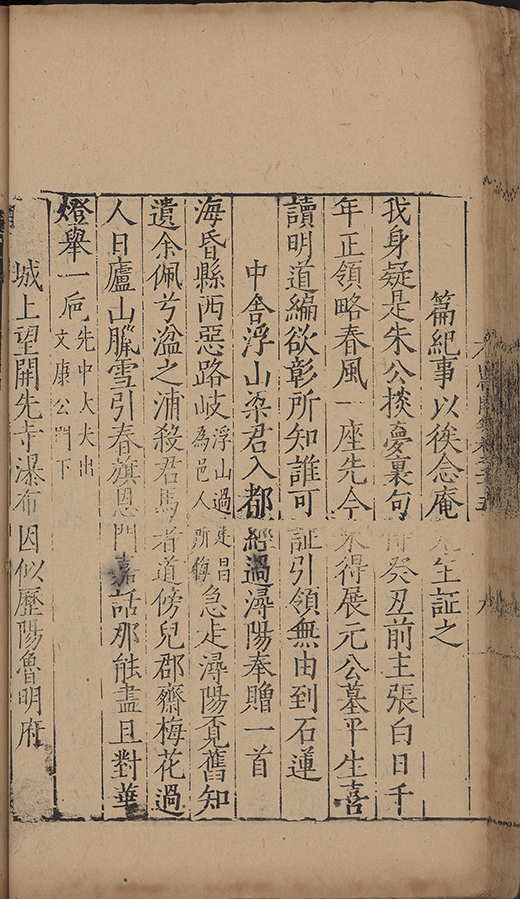 篇紀事以俟念庵先生証之
我身疑是朱公掞夢裏句得癸丑前主張白日千
年正領略春風一座先今來得展元公墓平生喜
讀明道編欲彰所知誰可証引領無由到石蓮
中舍浮山梁君入都經過潯陽奉贈一首
海昏縣西惡路岐浮山過建昌為邑人所侮急走潯陽覓舊知
遺余佩兮湓之浦殺君馬者道傍兒郡齋梅花過
人日廬山臘雪引春旗恩門嘉話那能盡且對華
燈舉一巵先中大夫出文康公門下
城上望開先寺瀑布因似歷陽魯明府